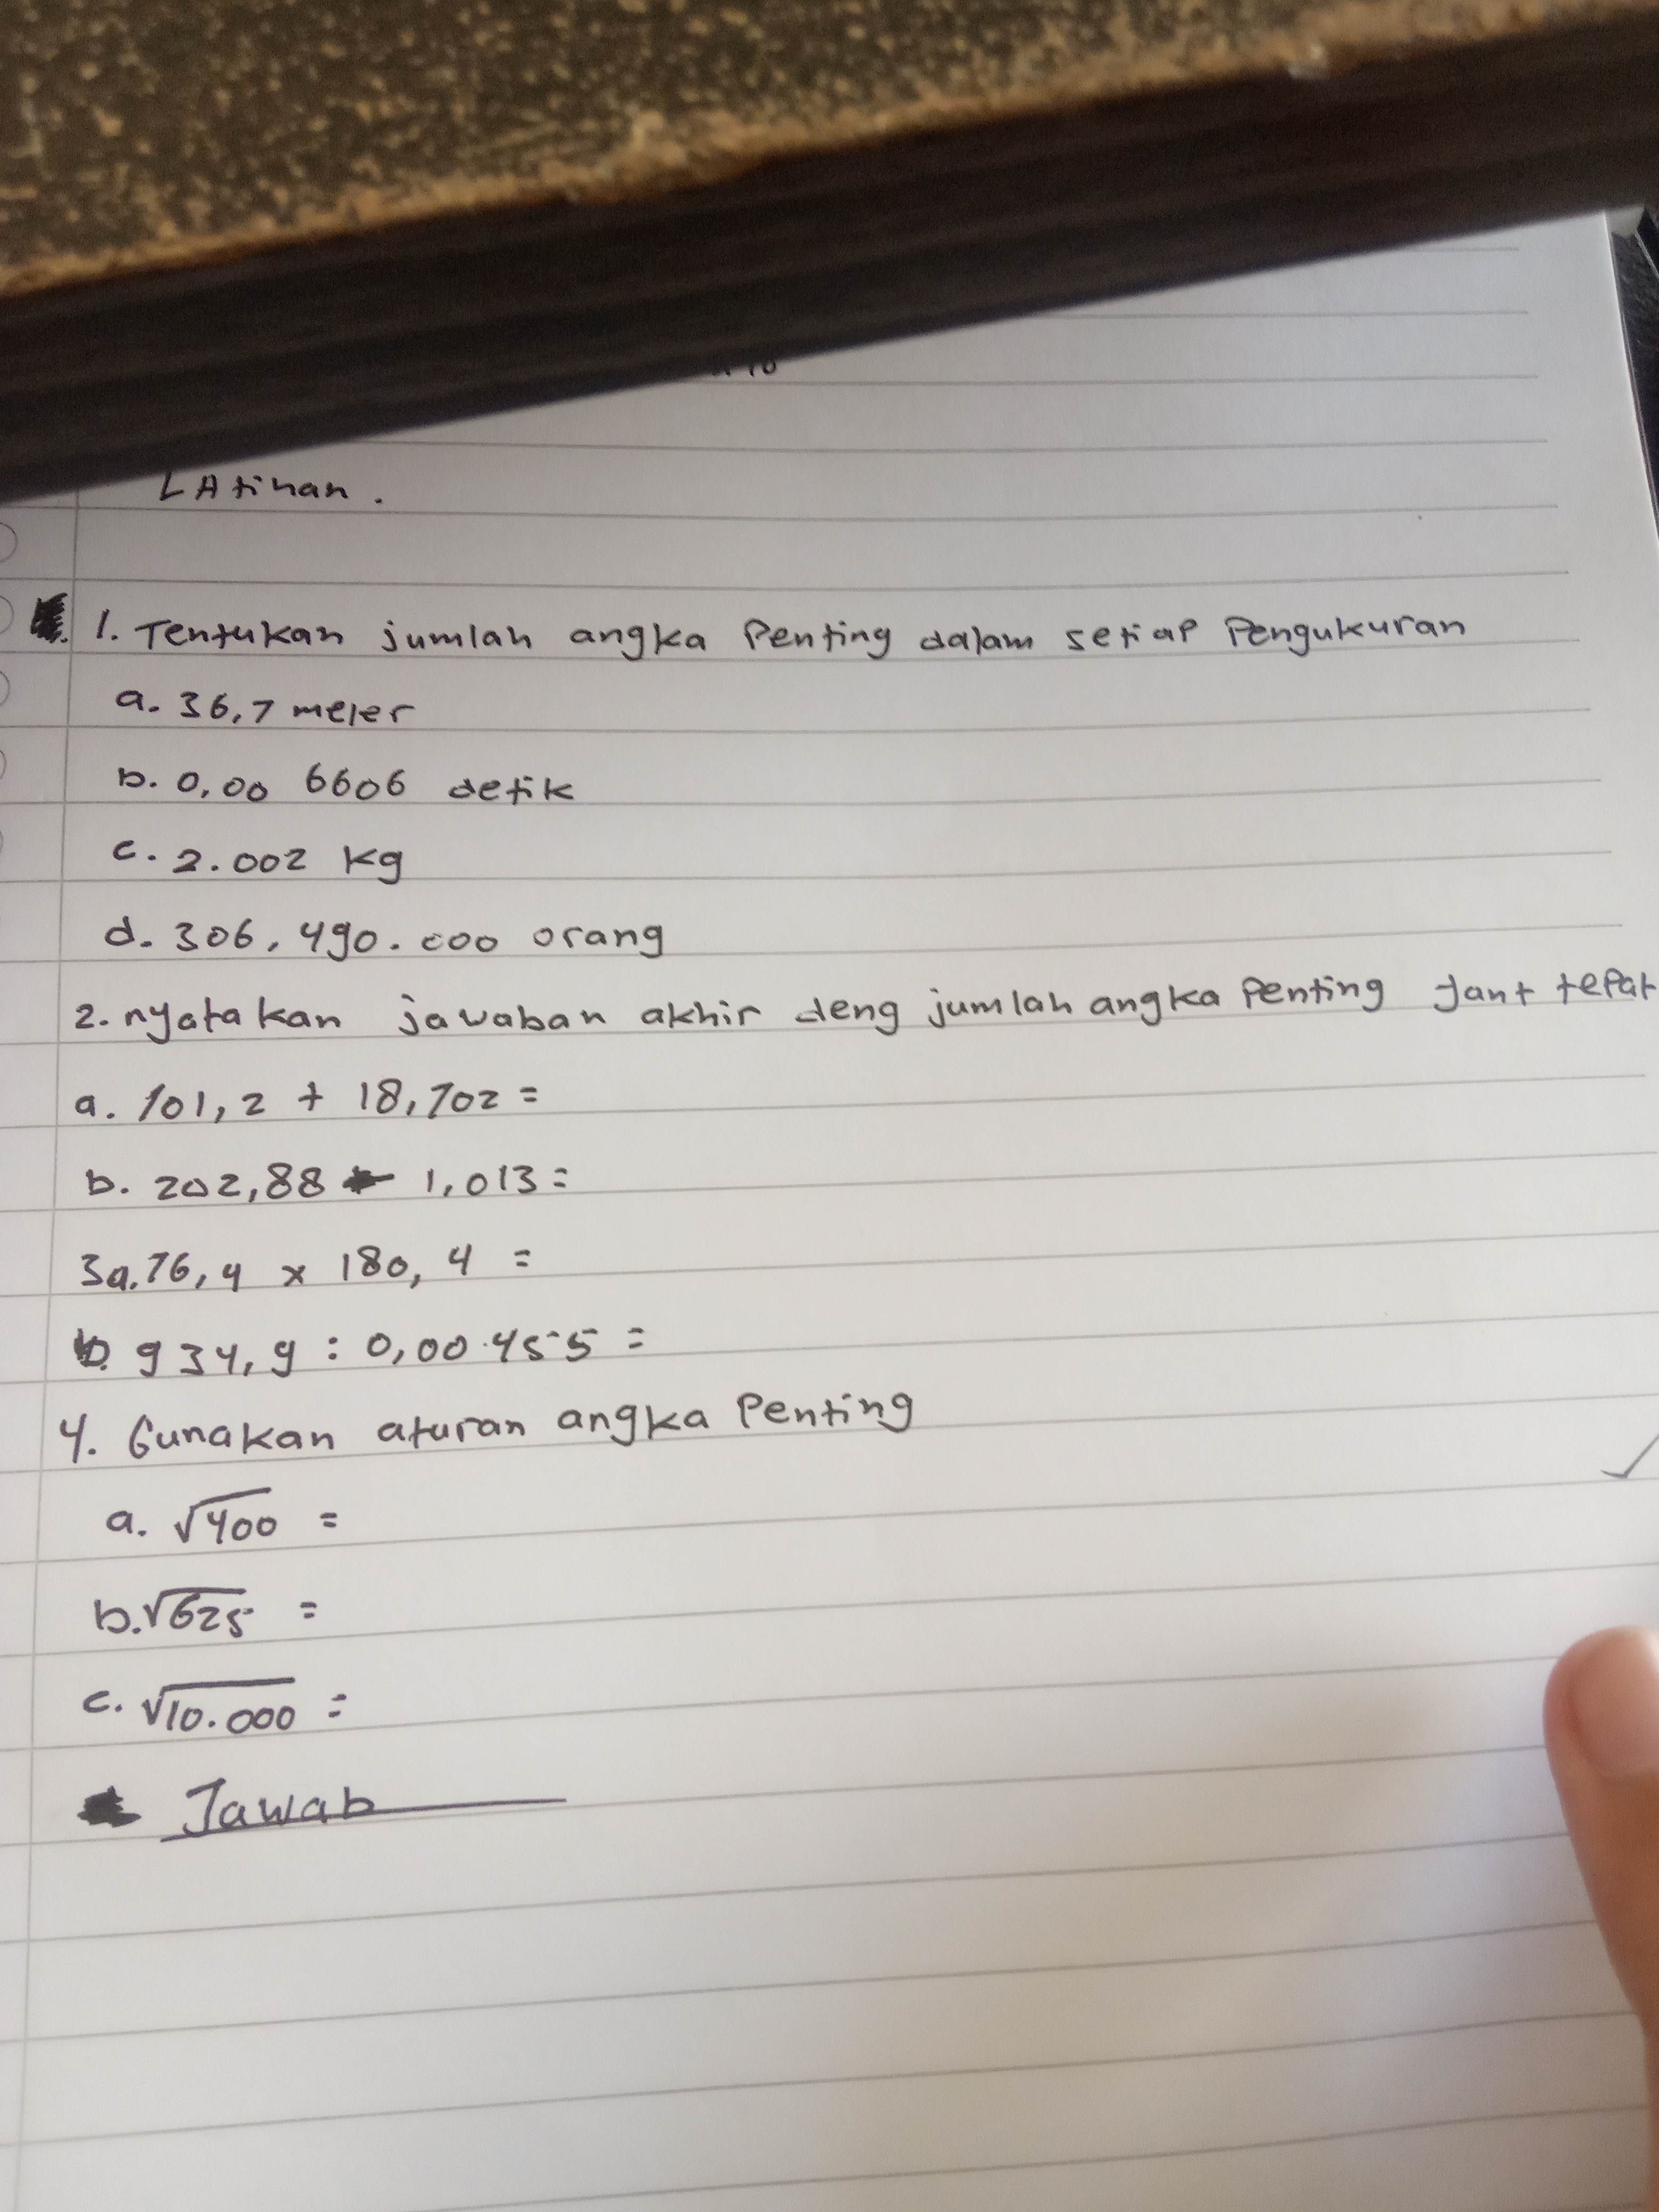 LAtihan.
1. Tentukan jumlah angka Penting dalam setiap Pengukuran
a. 36,7 meter
b. 0,00 6606 detik
c. 2.002 kg
d. 306,490.000 orang
2. nyatakan jawaban akhir deng jumlah angka Penting tepat
a. 101,2 + 18,702 =
b. 202,88 - 1,013 =
3a. 76,4 x 180,4 =
b. 934,9 : 0,00.455 =
4. Gunakan aturan angka Penting
a. √400 =
b. √625 =
c. √10.000 =
Jawab